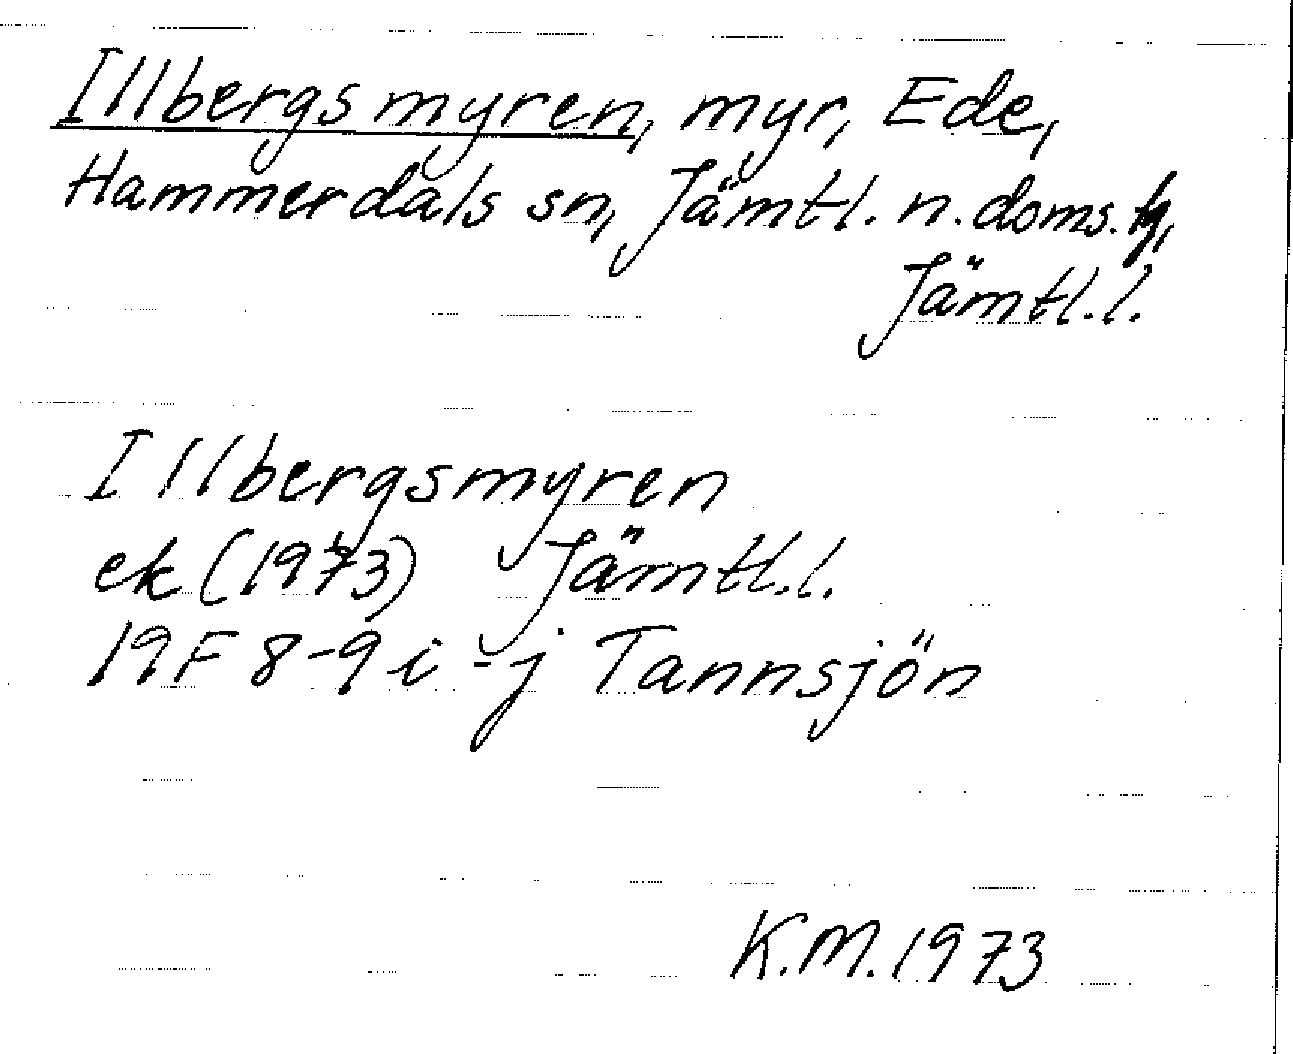 Illbergsmyren, myr, Ede,
Hammerdals sn, Jämtl. n. doms.
Jämtl.l.
Illbergsmyren
ek (1973) Jämtl.l.
19F 8-9 i-j Tannsjön
K.M. 1973